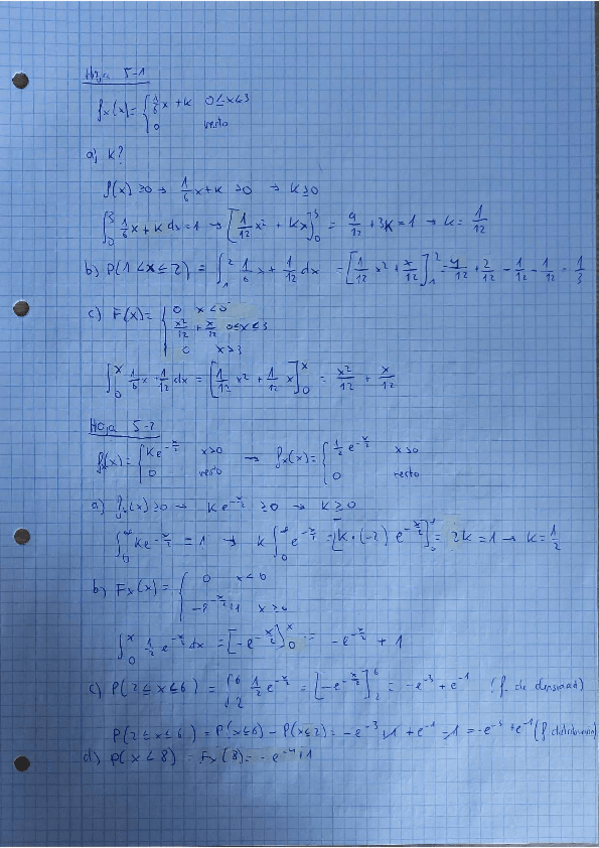 Hoja 5-1
fx(x) = { 1/6 x + k 0≤x≤3
0 resto
a) k?
f(x) ≥0 → 1/6 x + k ≥0 → k≥0
∫₀³ 1/6 x + k dx = 1 → [1/12 x² + kx]₀³ = 9/12 + 3k = 1 → k = 1/12
b) P(1<x≤2) = ∫₁² 1/6 x + 1/12 dx = [1/12 x² + x/12]₁² = 4/12 + 2/12 - 1/12 - 1/12 = 1/3
c) F(x) = { 0 x<0
x²/12 + x/12 0≤x≤3
0 x>3
∫₀ˣ 1/6 x + 1/12 dx = [1/12 x² + 1/12 x]₀ˣ = x²/12 + x/12
Hoja 5-2
fx(x) = { ke^(-x/2) x>0 → fx(x) = { 1/2 e^(-x/2) x>0
0 resto 0 resto
a) fx(x) ≥0 → ke^(-x/2) ≥0 → k≥0
∫₀^∞ ke^(-x/2) = 1 → k∫₀ e^(-x/2) = [k·(-2) e^(-x/2)] = 2k = 1 → k = 1/2
b) Fx(x) = { 0 x<0
-e^(-x/2)+1 x≥0
∫₀ˣ 1/2 e^(-x/2) dx = [-e^(-x/2)]₀ˣ = -e^(-x/2) + 1
c) P(2≤x≤6) = ∫₂⁶ 1/2 e^(-x/2) = [-e^(-x/2)]₂⁶ = -e⁻³ + e⁻¹ (f. de densidad)
P(2≤x≤6) = P(x≤6) - P(x≤2) = -e⁻³ + 1 + e⁻¹ - 1 = -e⁻³ + e⁻¹ (f. distribución)
d) P(x<8) = Fx(8) = -e⁻⁴+1